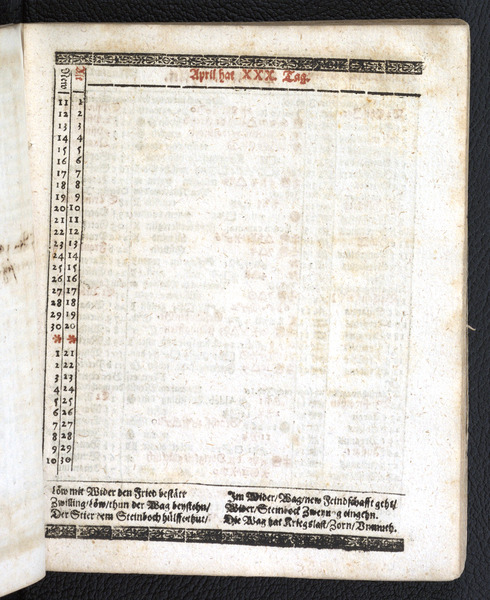 New Alt
April hat XXX. Tag.
11 1
12 2
13 3
14 4
15 5
16 6
17 7
18 8
19 9
20 10
21 11
22 12
23 13
24 14
25 15
26 16
27 17
28 18
29 19
30 20
1 21
2 22
3 23
4 24
5 25
6 26
7 27
8 28
9 29
10 30
Löw mit Wider den Fried bestätt
Zwilling/Löw/thun der Wag beystehn/
Der Stier dem Steinboch hülff
Im Wider/Wag/new Feindschafft geht/
Wider/Steinbock eingehn.
Die Wag hat Kriegslast/Zorn/Unmuth.